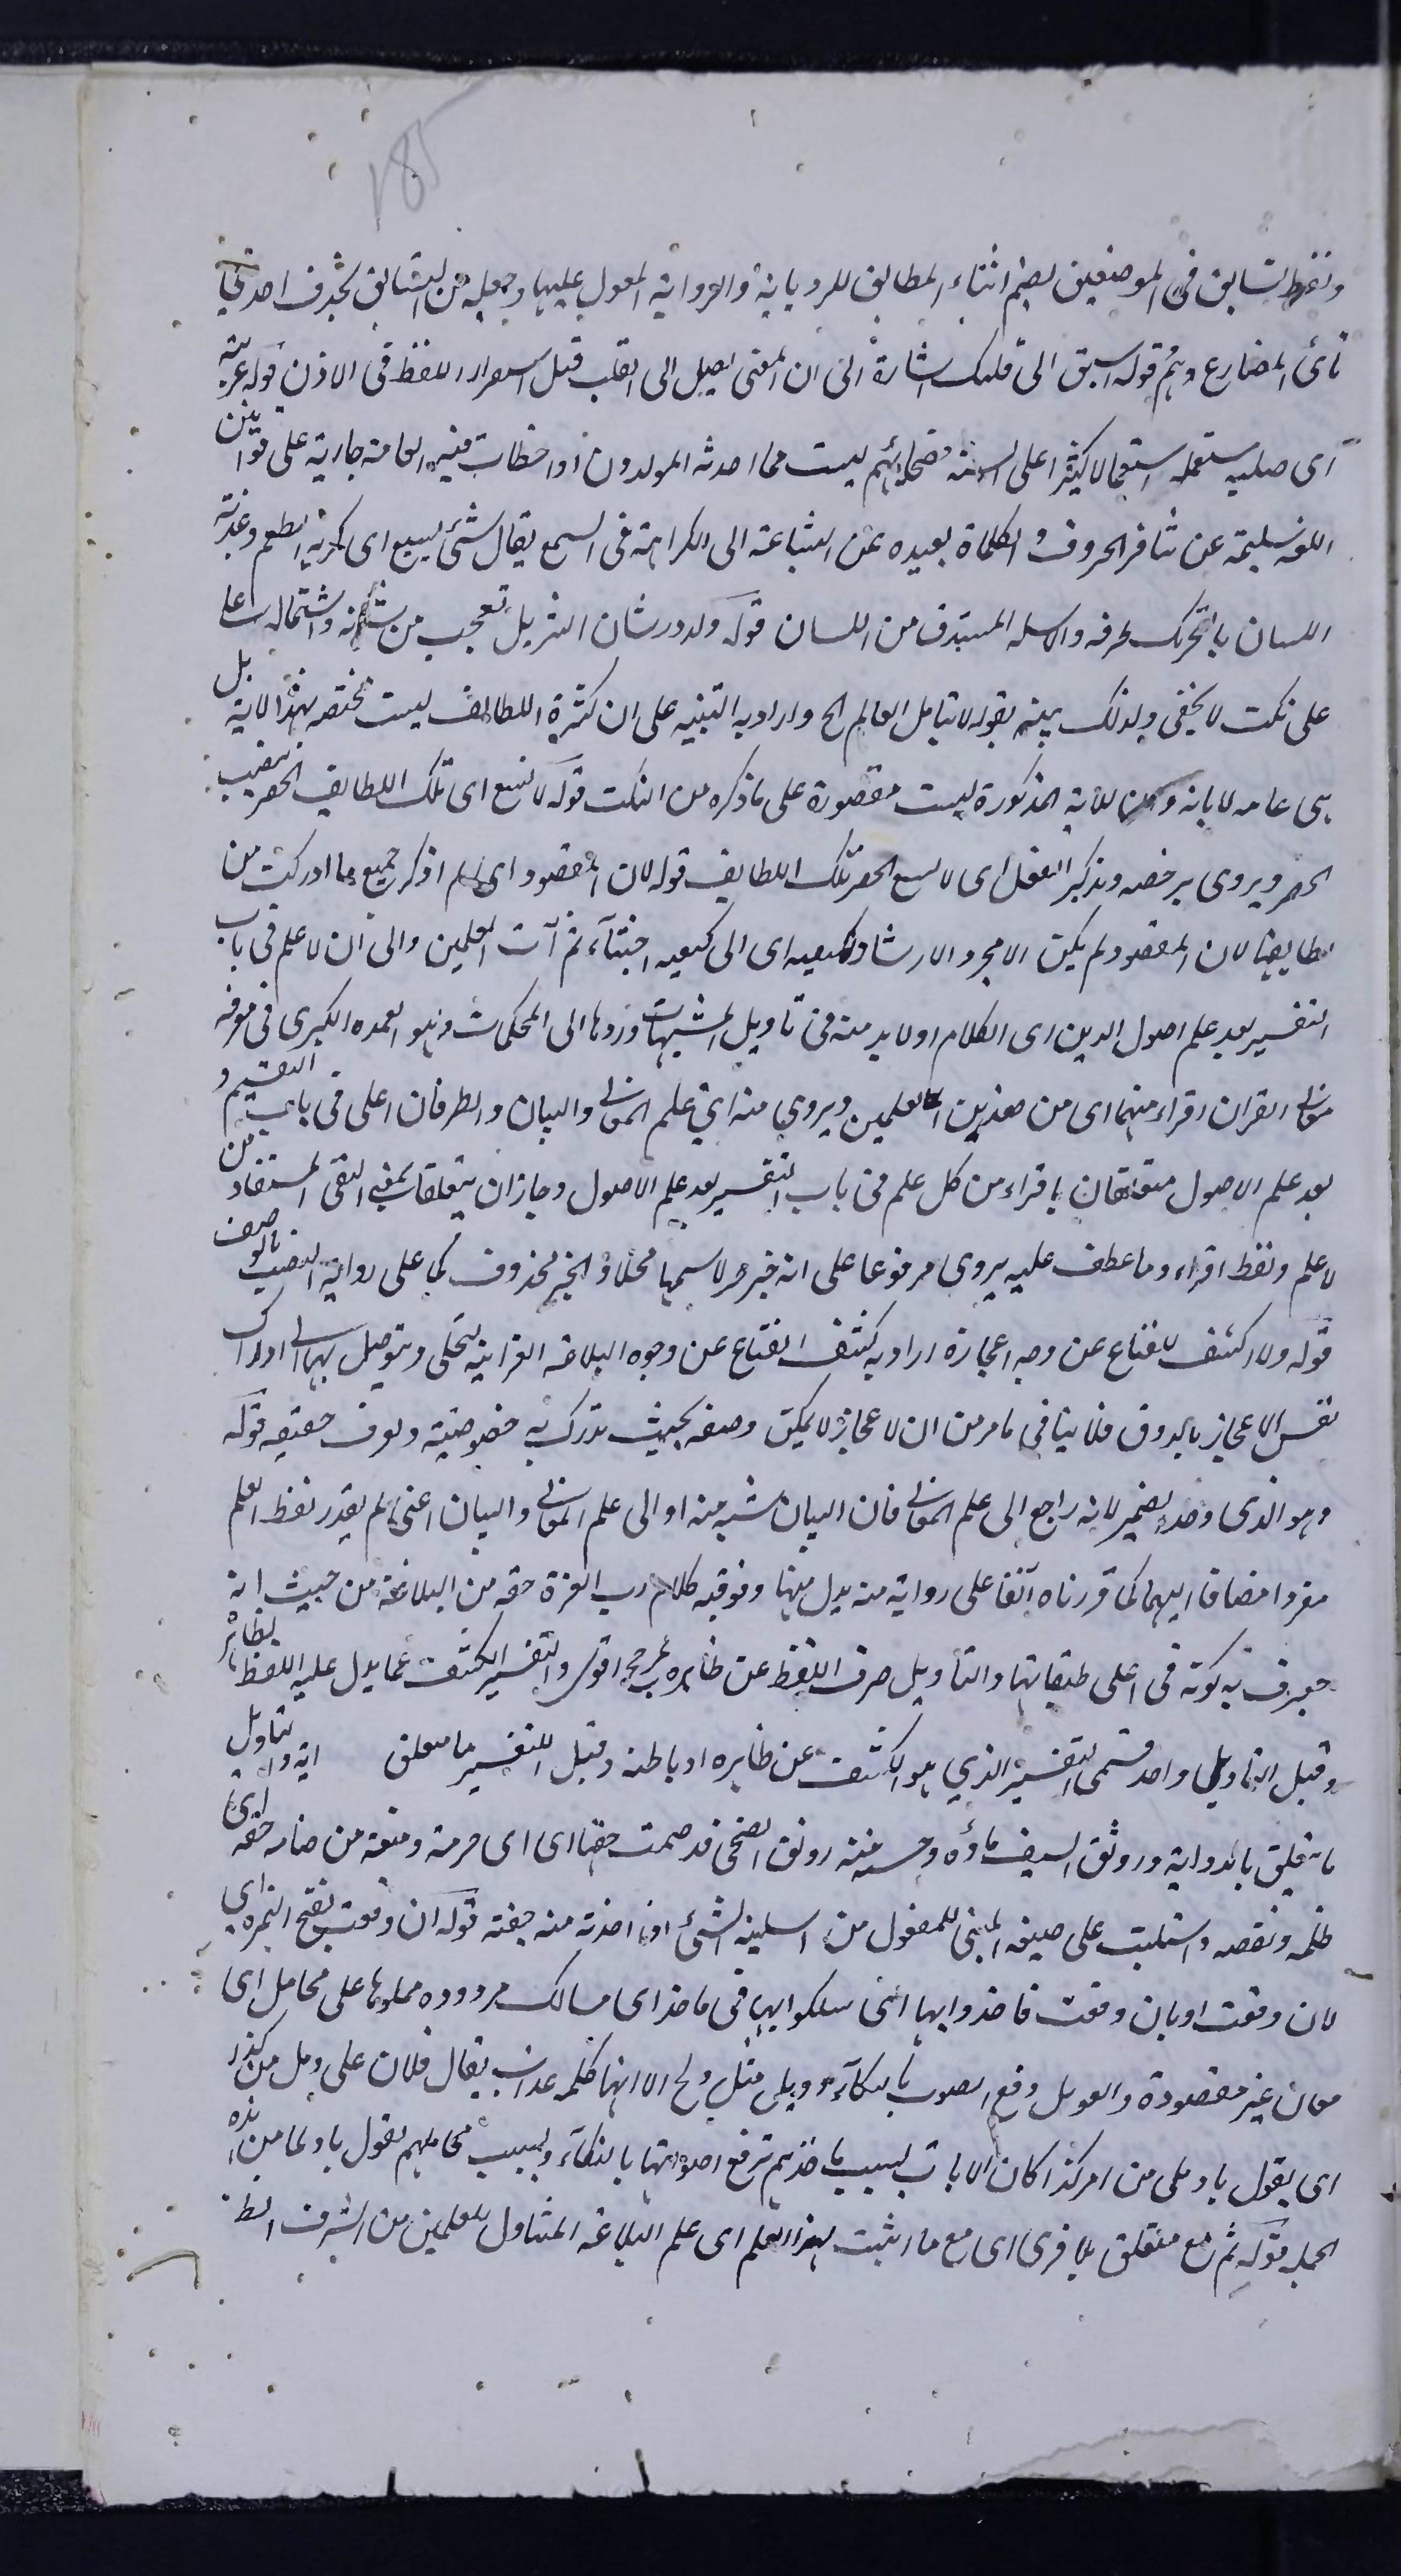 185
ولفظ تسابق في الموضعين بضم اثناء المطابق للرواية والرواية المعول عليها وجعله من التسابق بحذف احدى
تائي المضارع وهم قوله اسبق الى قلبك اشارة الى ان المعنى يصل الى القلب قبل استقرار اللفظ في الاذن قوله عربية
اى صلبه يستعمله استعمالا كثيرا على السنة فصحائهم ليست مما احدثه المولدون او اخطات فيه العامة جارية على قوانين
اللغة سليمة عن تنافر الحروف والكلماة بعيده عن البشاعة الى الكراهة في السمع يقال شئ بشيع اى كريه الطعم وعذبة
اللسان بالتحريك طرفه والاسلة المستدق من اللسان قوله ولله در شان التنزيل تعجب من شانه واشتماله
على نكت لا يخفى ولذلك بينه بقوله لا يتامل العالم الخ واراد به التنبيه على ان كثرة اللطائف ليست مختصه بهذا الاية بل
هى عامه لاياته وان للاية المذكورة ليست مقصورة على ما ذكره من النكت قوله لا تسع اى تلك اللطايف الحصر بنصب
الحصر ويروى برفعه وبذكير الفعل اى لا يسع الحصر تلك اللطايف قوله لان المقصود اى لم اذكر جميع ما ادركت من
لطايفها لان المقصود لم يكن الا مجرد الارشاد لكيفيه اى الى كيفيه اجتناء ثمرات العلمين والى ان لا علم في باب
التفسير بعد علم اصول الدين اى الكلام اولا بد منه في تاويل المتشبهات وردها الى المحكمات وهو العمده الكبرى في معرفه
معاني القران اقراء منهما اى من هذين العلمين ويروى منه اى علم المعاني والبيان والطرفان اعلى في باب التفسير و
بعد علم الاصول متعلقان باقراء من كل علم في باب التفسير بعد علم الاصول وجاز ان يتعلقا بمعنى النفى المستفاد من
لا علم ولفظ اقراء وما عطف عليه يروى مرفوعا على انه خبر لا اسمها محلا والخبر محذوف كما على رواية النصب بالوصف
قوله ولا اكشف للقناع عن وجه اعجازه اراد به كشف القناع عن وجوه البلاغه القرانيه ليتجلى ويتوصل بها الى ادراك
نفس الاعجاز بالذوق فلا ينافي ما مر من ان لاعجاز لا يمكن وصفه بحيث تدرك به خصوصيته ويعرف حقيقه قوله
وهو الذى وحد الضمير لانه راجع الى علم المعاني فان البيان شعبه منه او الى علم المعاني والبيان اعنى لم يقدر لفظ العلم
مفردا مضافا اليهما كما قررناه آنفا على رواية منه بدل منهما وتوفيه كلام رب العزة حقه من البلاغة من حيث انه
يعرف به كونه في اعلى طبقاتها والتاويل صرف اللفظ عن ظاهره لمرجح اقوى والتفسير الكشف عما يدل عليه اللفظ بظاهر
وقيل التاويل واحد قسمى التفسير الذي هو الكشف عن ظاهره او باطنه وقيل التفسير ما يتعلق
ما يتعلق بالدراية ورونق السيف ماؤه وحسنه منه رونق الضحى قد ضيمت حقها اى اى حرمته ومنعته من ضامه حقه اى
ظلمه ونقصه واستلبت على صيغه المبنى للمفعول من استلبته الشئ اى اخذته منه خفته قوله ان وقعت بفتح الهمزه اى
لان وقعت او بان وقعت فاخذوا بها اى سلكوا بها في ماخذ اى مسالك مردوده حملوها على محامل اى
معان غير مقصودة والعويل رفع الصوت بالبكاء وويل مثل ويح الا انها كلمه عذاب يقال فلان على ويل من كذا
اى يقول يا ويلى من امر كذا كان الايات بسبب ماخذهم ترفع اصواتها بالبكاء وبسبب محاملهم تقول يا ويلنا من هذه
الجملة قوله ثم مع متعلق بلا فرى اى مع ما اثبت لهذا العلم اى علم البلاغه المتناول للعلمين من الشرف الظ